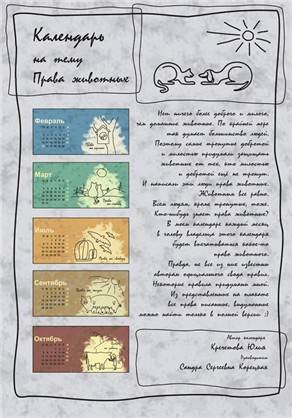 Календарь
на тему
Права животных
Февраль
Март
Июль
Сентябрь
Октябрь
Нет ничего более доброго и милого,
чем домашние животные. По крайней мере
так думает большинство людей.
Поэтому самые трепетные добротой
и милостью придумали защищать
животных от тех, кто милостью
и добротой ещё не тронут.
И написали эти люди права животных.
Животным все равно.
Всем людям, кроме тронутых, тоже.
Кто-нибудь знает права животных?
В моем календаре каждый месяц
в голову владельца этого календаря
будет впечатываться какое-то
право животного.
Правда, не все из них известны
авторам официального свода правил.
Некоторые правила придумали мной.
Из представленных на плакате
все права писанные, выдуманные
можно найти только в полной версии :)
Автор календаря
Кречетова Юлия
Руководитель
Сандра Сергеевна Корецкая